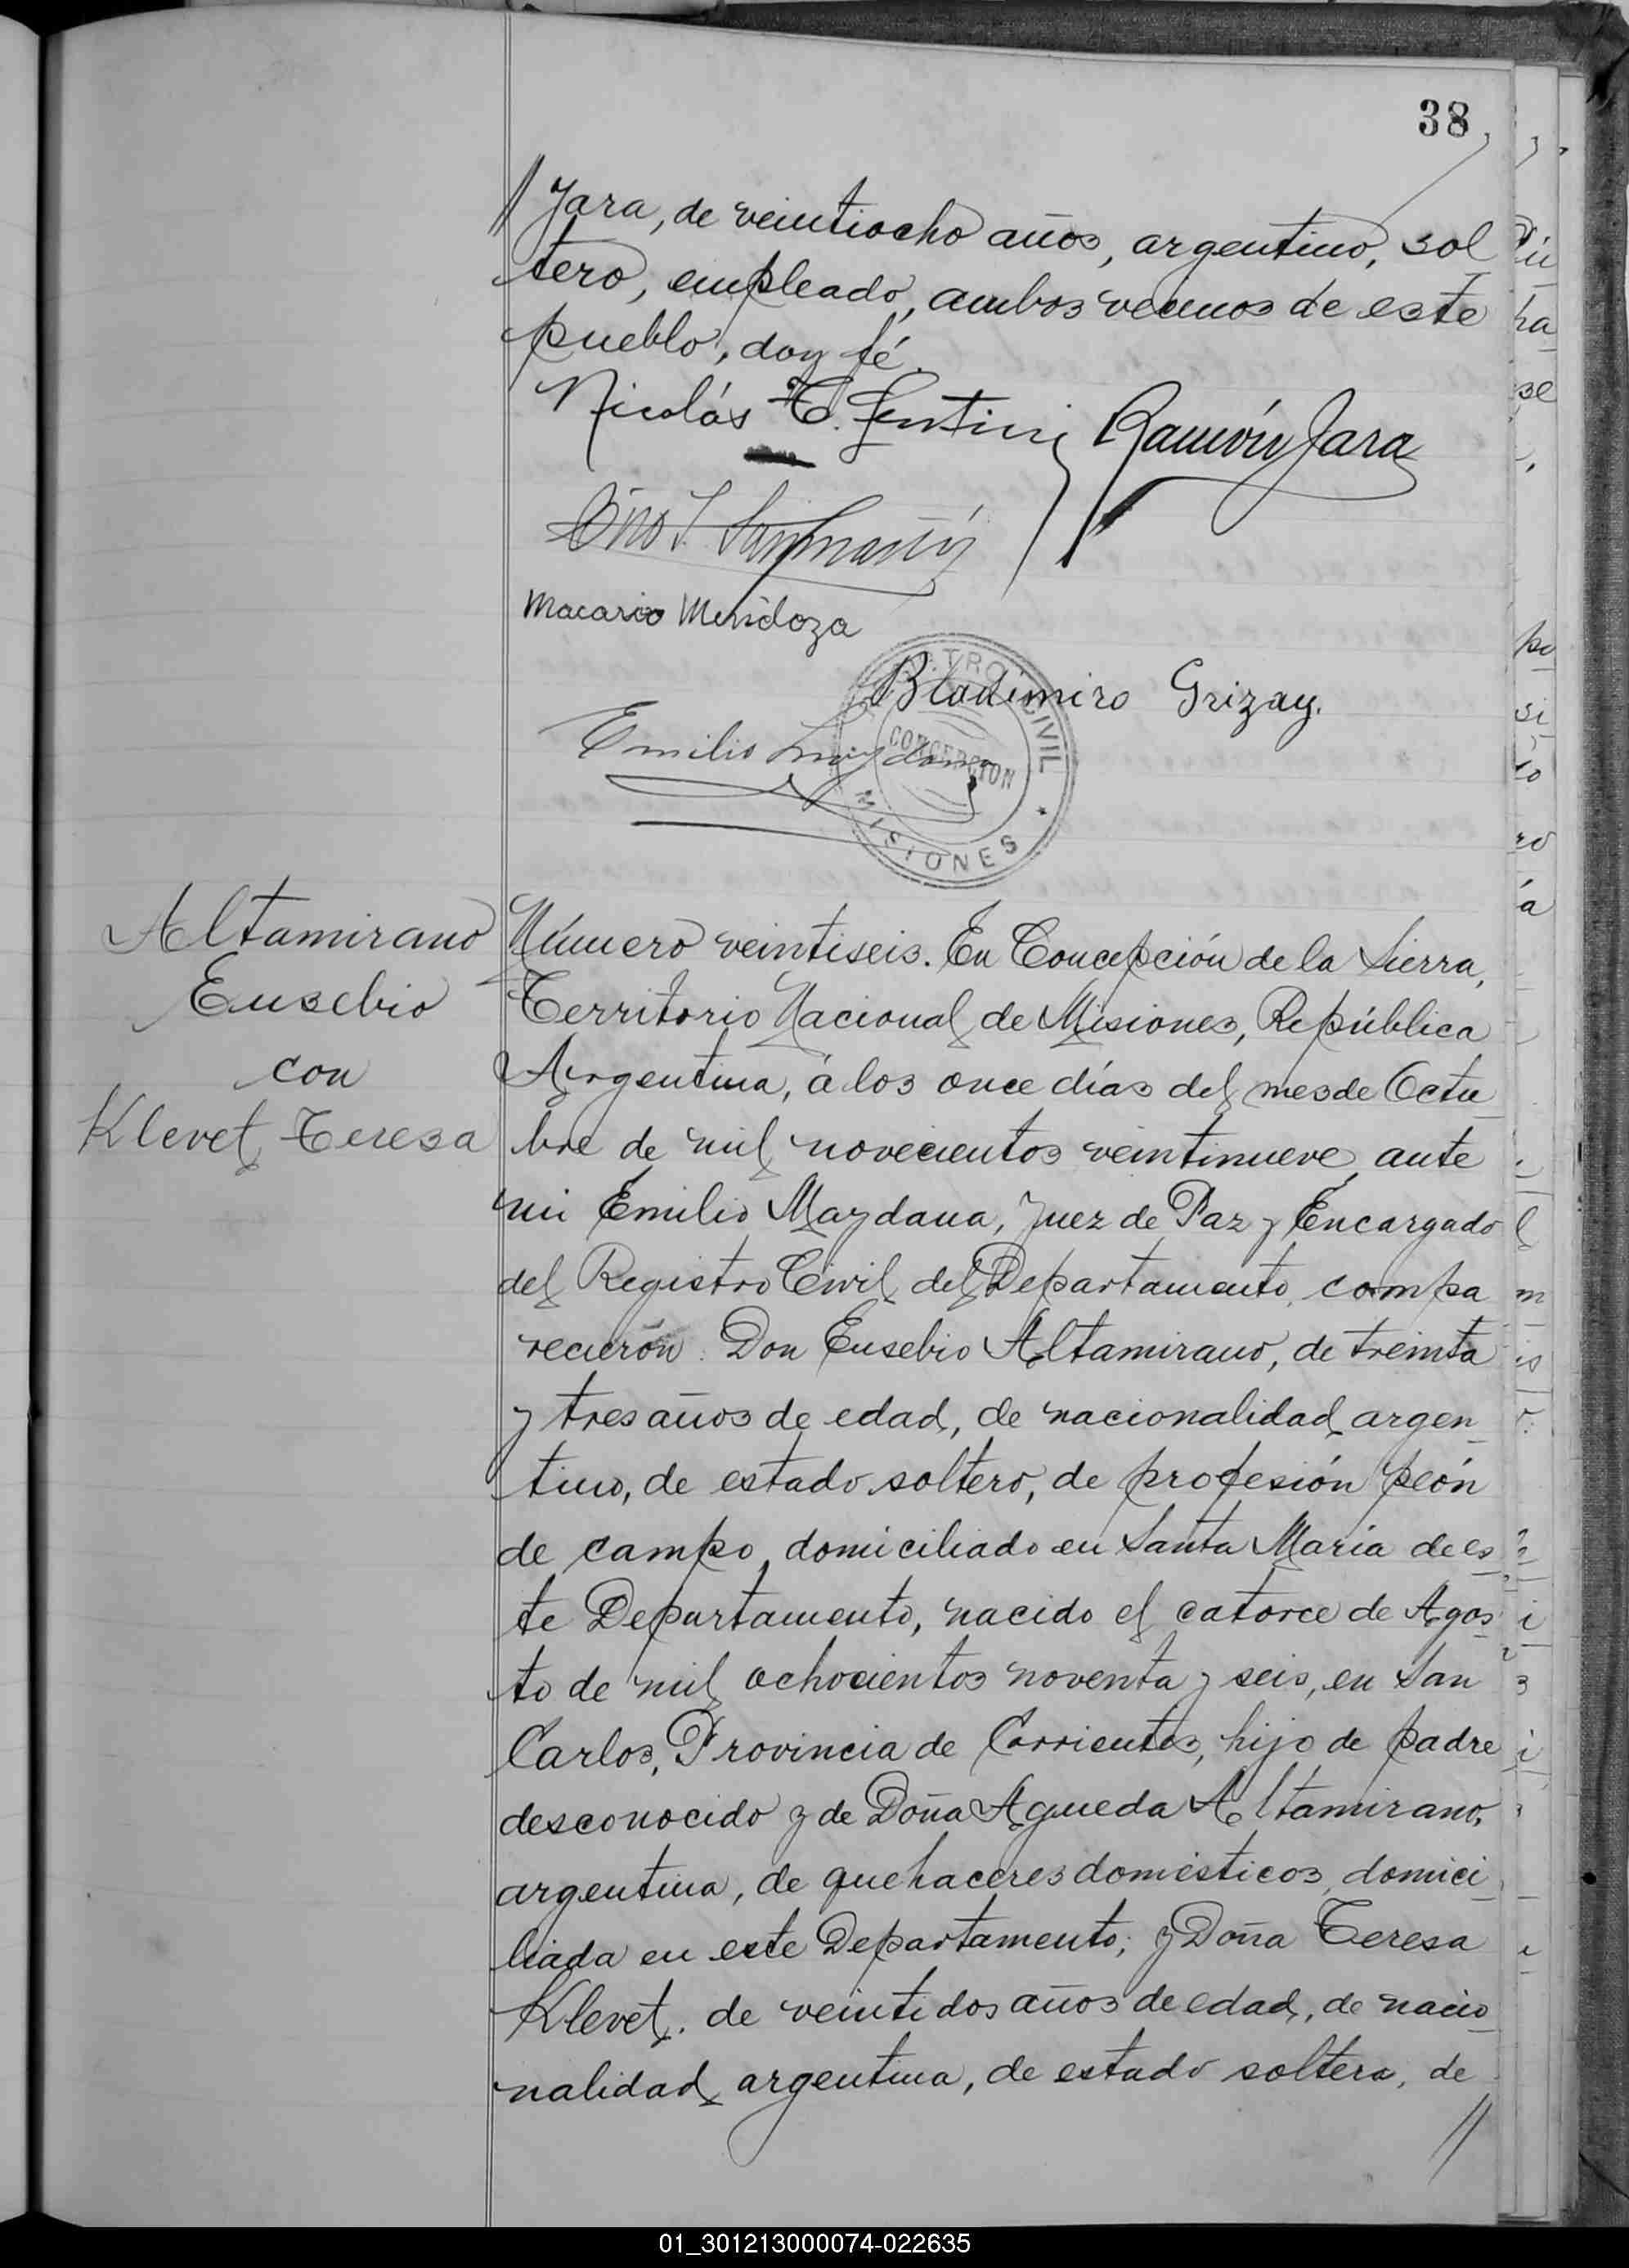 38
// Jara, de veintiocho años, argentino, sol
tero, empleado, ambos vecinos de este
pueblo, doy fé.
Nicolás C. Gentini Ramón Jara
Macario Mendoza
Bladimiro Grizay.
Emilio Maydana
REGISTRO CIVIL
CONCEPCION
MISIONES
Altamirano
Eusebio
con
Klevet Teresa
Número veintiseis. En Concepción de la Sierra,
Territorio Nacional de Misiones, República
Argentina, á los once días del mes de Octu
bre de mil novecientos veintinueve, ante
mi Emilio Maydana, Juez de Paz y Encargado
del Registro Civil del Departamento, compa
recieron: Don Eusebio Altamirano, de treinta
y tres años de edad, de nacionalidad argen
tino, de estado soltero, de profesión peón
de campo, domiciliado en Santa María de es
te Departamento, nacido el catorce de Agos
to de mil ochocientos noventa y seis, en San
Carlos, Provincia de Corrientes, hijo de padre
desconocido y de Doña Agueda Altamirano,
argentina, de quehaceres domésticos, domici
liada en este Departamento; y Doña Teresa
Klevet, de veintidos años de edad, de nacio
nalidad argentina, de estado soltera, de
//
01_301213000074-022635